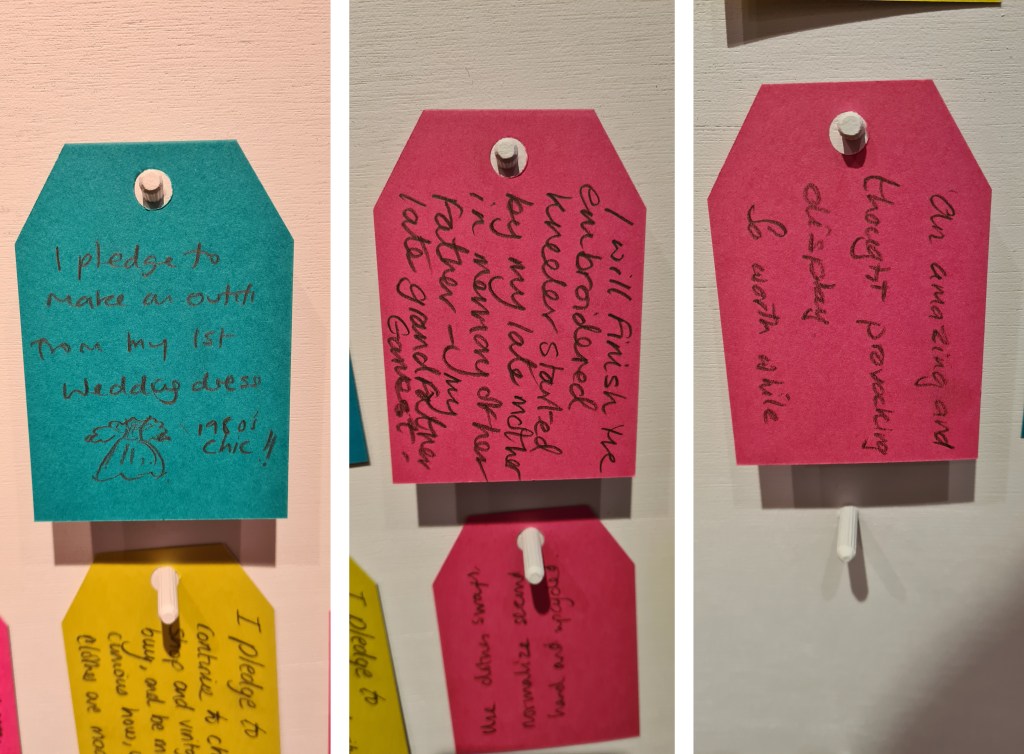 I pledge to
make an outfit
from my 1st
Wedding dress
1980's
chic !!
I pledge to
continue to ch
shop and vinta
buy, and be m
curious how,
clothes are mad
I will finish the
embroidered
kneeler started
by my late mother
in memory of her
Father - my
late grandfather
I pledge to
use clothes swap.
normalize
hand and upcycled
An amazing and
thought provocking
display
So worth while